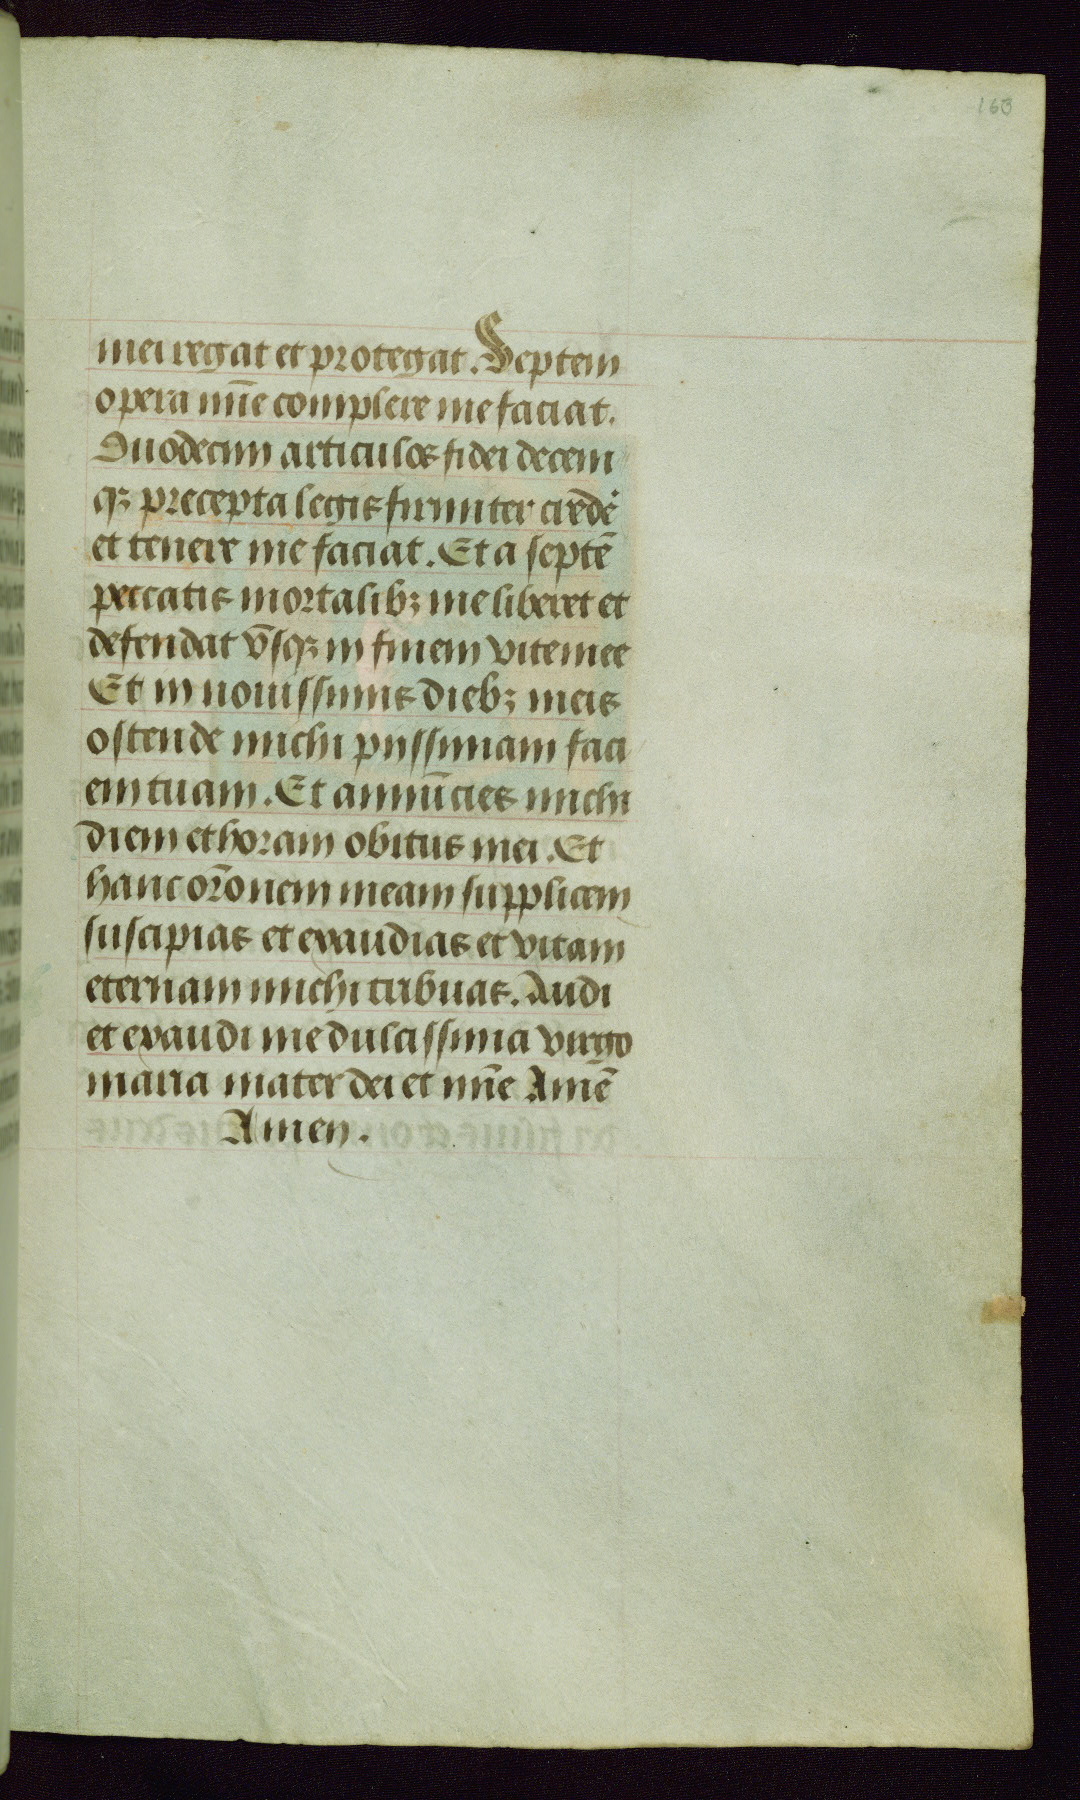 163
mei regat et protegat. Septem
opera mīe complere me faciat.
Duodecim articulos fidei decem
qꝫ precepta legis firmiter credē
et tenere me faciat. Et a septē
peccatis mortalibꝫ me liberet et
defendat vsqꝫ in finem vite mee
Et in nouissimis diebꝫ meis
ostende michi piissimam faci
em tuam. Et annūcies michi
diem et horam obitus mei. Et
hanc orōnem meam supplicem
suscipias et exaudias et vitam
eternam michi tribuas. Audi
et exaudi me dulcissima virgo
maria mater dei et mīe Amē
Amen.